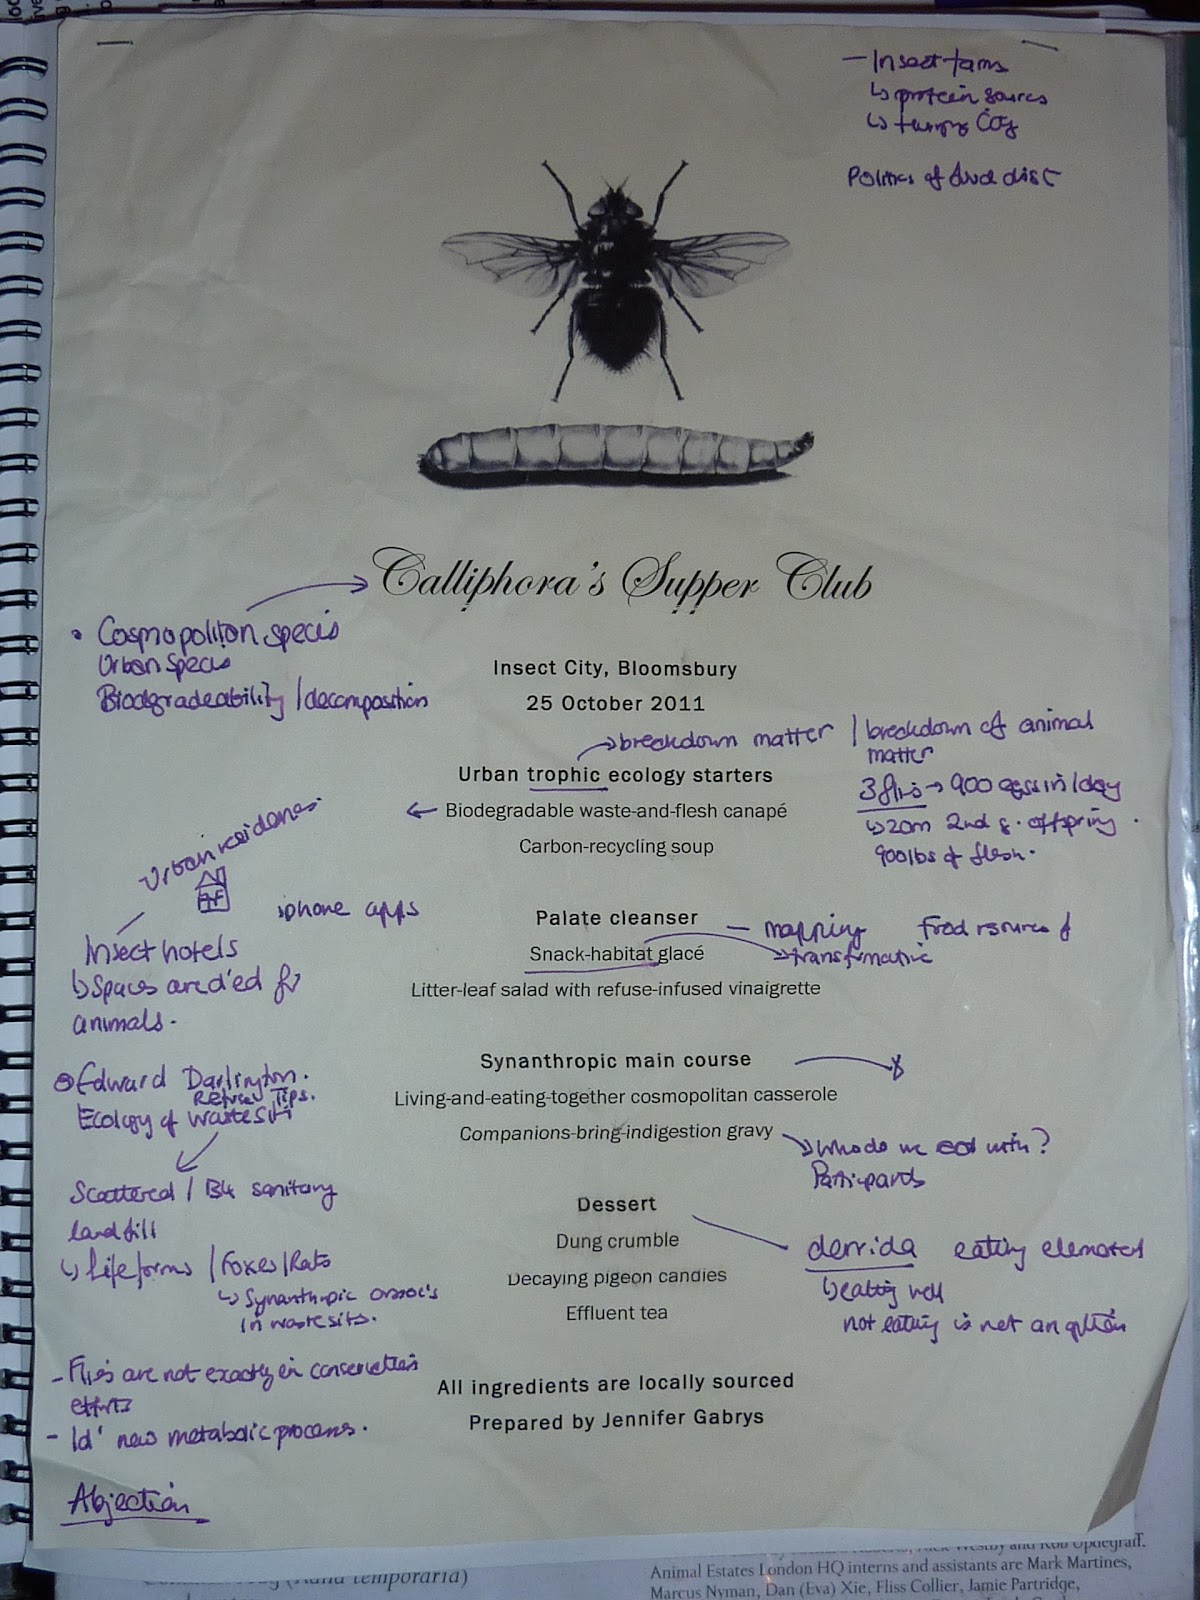 – Insect farms
↳ protein source
↳
Politics of
Calliphora's Supper Club
• Cosmopolitan species
Urban species
Biodgradeability / decomposition
Insect City, Bloomsbury
25 October 2011
→ breakdown matter / breakdown of animal
matter
Urban trophic ecology starters
Biodegradable waste-and-flesh canapé
Carbon-recycling soup
3 flies → 900 eggs in 1 day
↳ 20m 2nd g. offspring.
900lbs of flesh.
Urban residences
iphone apps
Insect hotels
↳ Spaces
animals.
Palate cleanser
Snack-habitat glacé
Litter-leaf salad with refuse-infused vinaigrette
– mapping
→ transformative
Synanthropic main course
Living-and-eating-together cosmopolitan casserole
Companions-bring-indigestion gravy
→ who do we eat with?
Participants
Edward Darlington.
Refuse Tips.
Ecology of waste
Scattered / B4 sanitary
landfill
↳ lifeforms / Foxes / Rats
↳ Synanthropic assoc's
in waste sites.
Dessert
Dung crumble
Decaying pigeon candies
Effluent tea
derrida eating
↳ eating well
not eating is not an option
– Flies are not exactly in conservation
efforts
– Id' new metabolic process.
Abjection
All ingredients are locally sourced
Prepared by Jennifer Gabrys
(Rana temporaria)
Westby and Rob Updegraff.
Animal Estates London HQ interns and assistants are Mark Martines,
Marcus Nyman, Dan (Eva) Xie, Fliss Collier, Jamie Partridge,